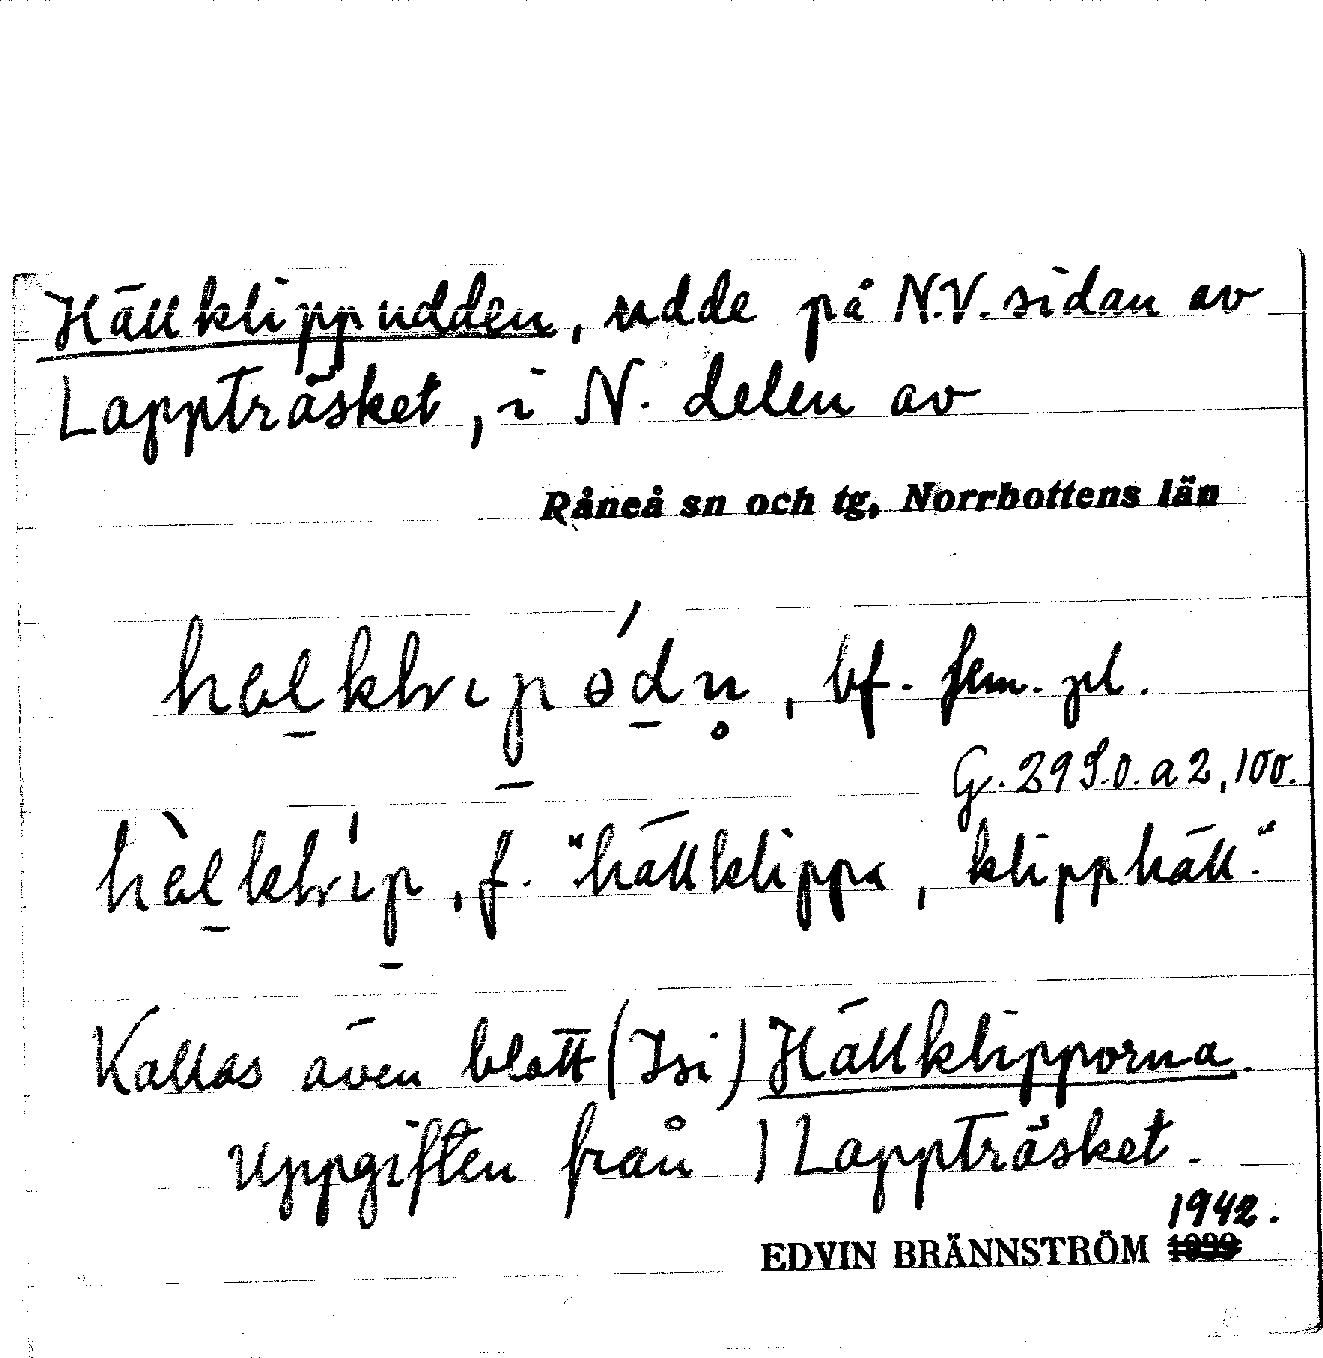 Hällklippudden, udde på N.V. sidan av
Lappträsket, i N. delen av
Råneå sn och tg, Norrbottens län
bf. fem. pl.
G. 29 S.O. a 2, 100.
f. "hällklippa, klipphäll."
Kallas även blott (Isi) Hällklipporna.
Uppgiften från 1 Lappträsket.
1942.
EDVIN BRÄNNSTRÖM